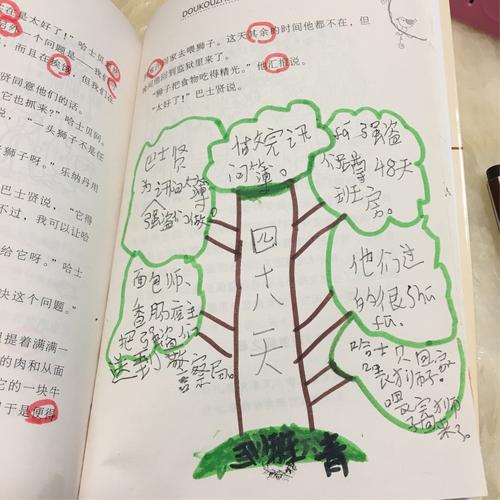 是太好了！”哈士贝
一个问题是——我们
，而且在挨饿，但我们在
士贤同意他们的话。
它也抓来？”哈士贝问。
“一头狮子不是任
狮子呀。”乐纳丹用
巴士贤说，“它得
不过，我可以让哈
给它呀。”哈士
决这个问题。”
里提着满满一
的肉和从面
它的一块牛
于是便得
DOUKOUZ
回家去喂狮子。这天其余的时间他都不在，但
他回到监狱里来了。
“狮子把食物吃得精光。”他汇报说。
“太好了！”巴士贤说。
巴士贤
为
强盗们做。
做完讯
问簿。
强盗
48天
班房。
他们过
的很舒
面包师、
香肠店主
把强盗们
送到警察局。
哈士贝回家
喂完狮
四十八天